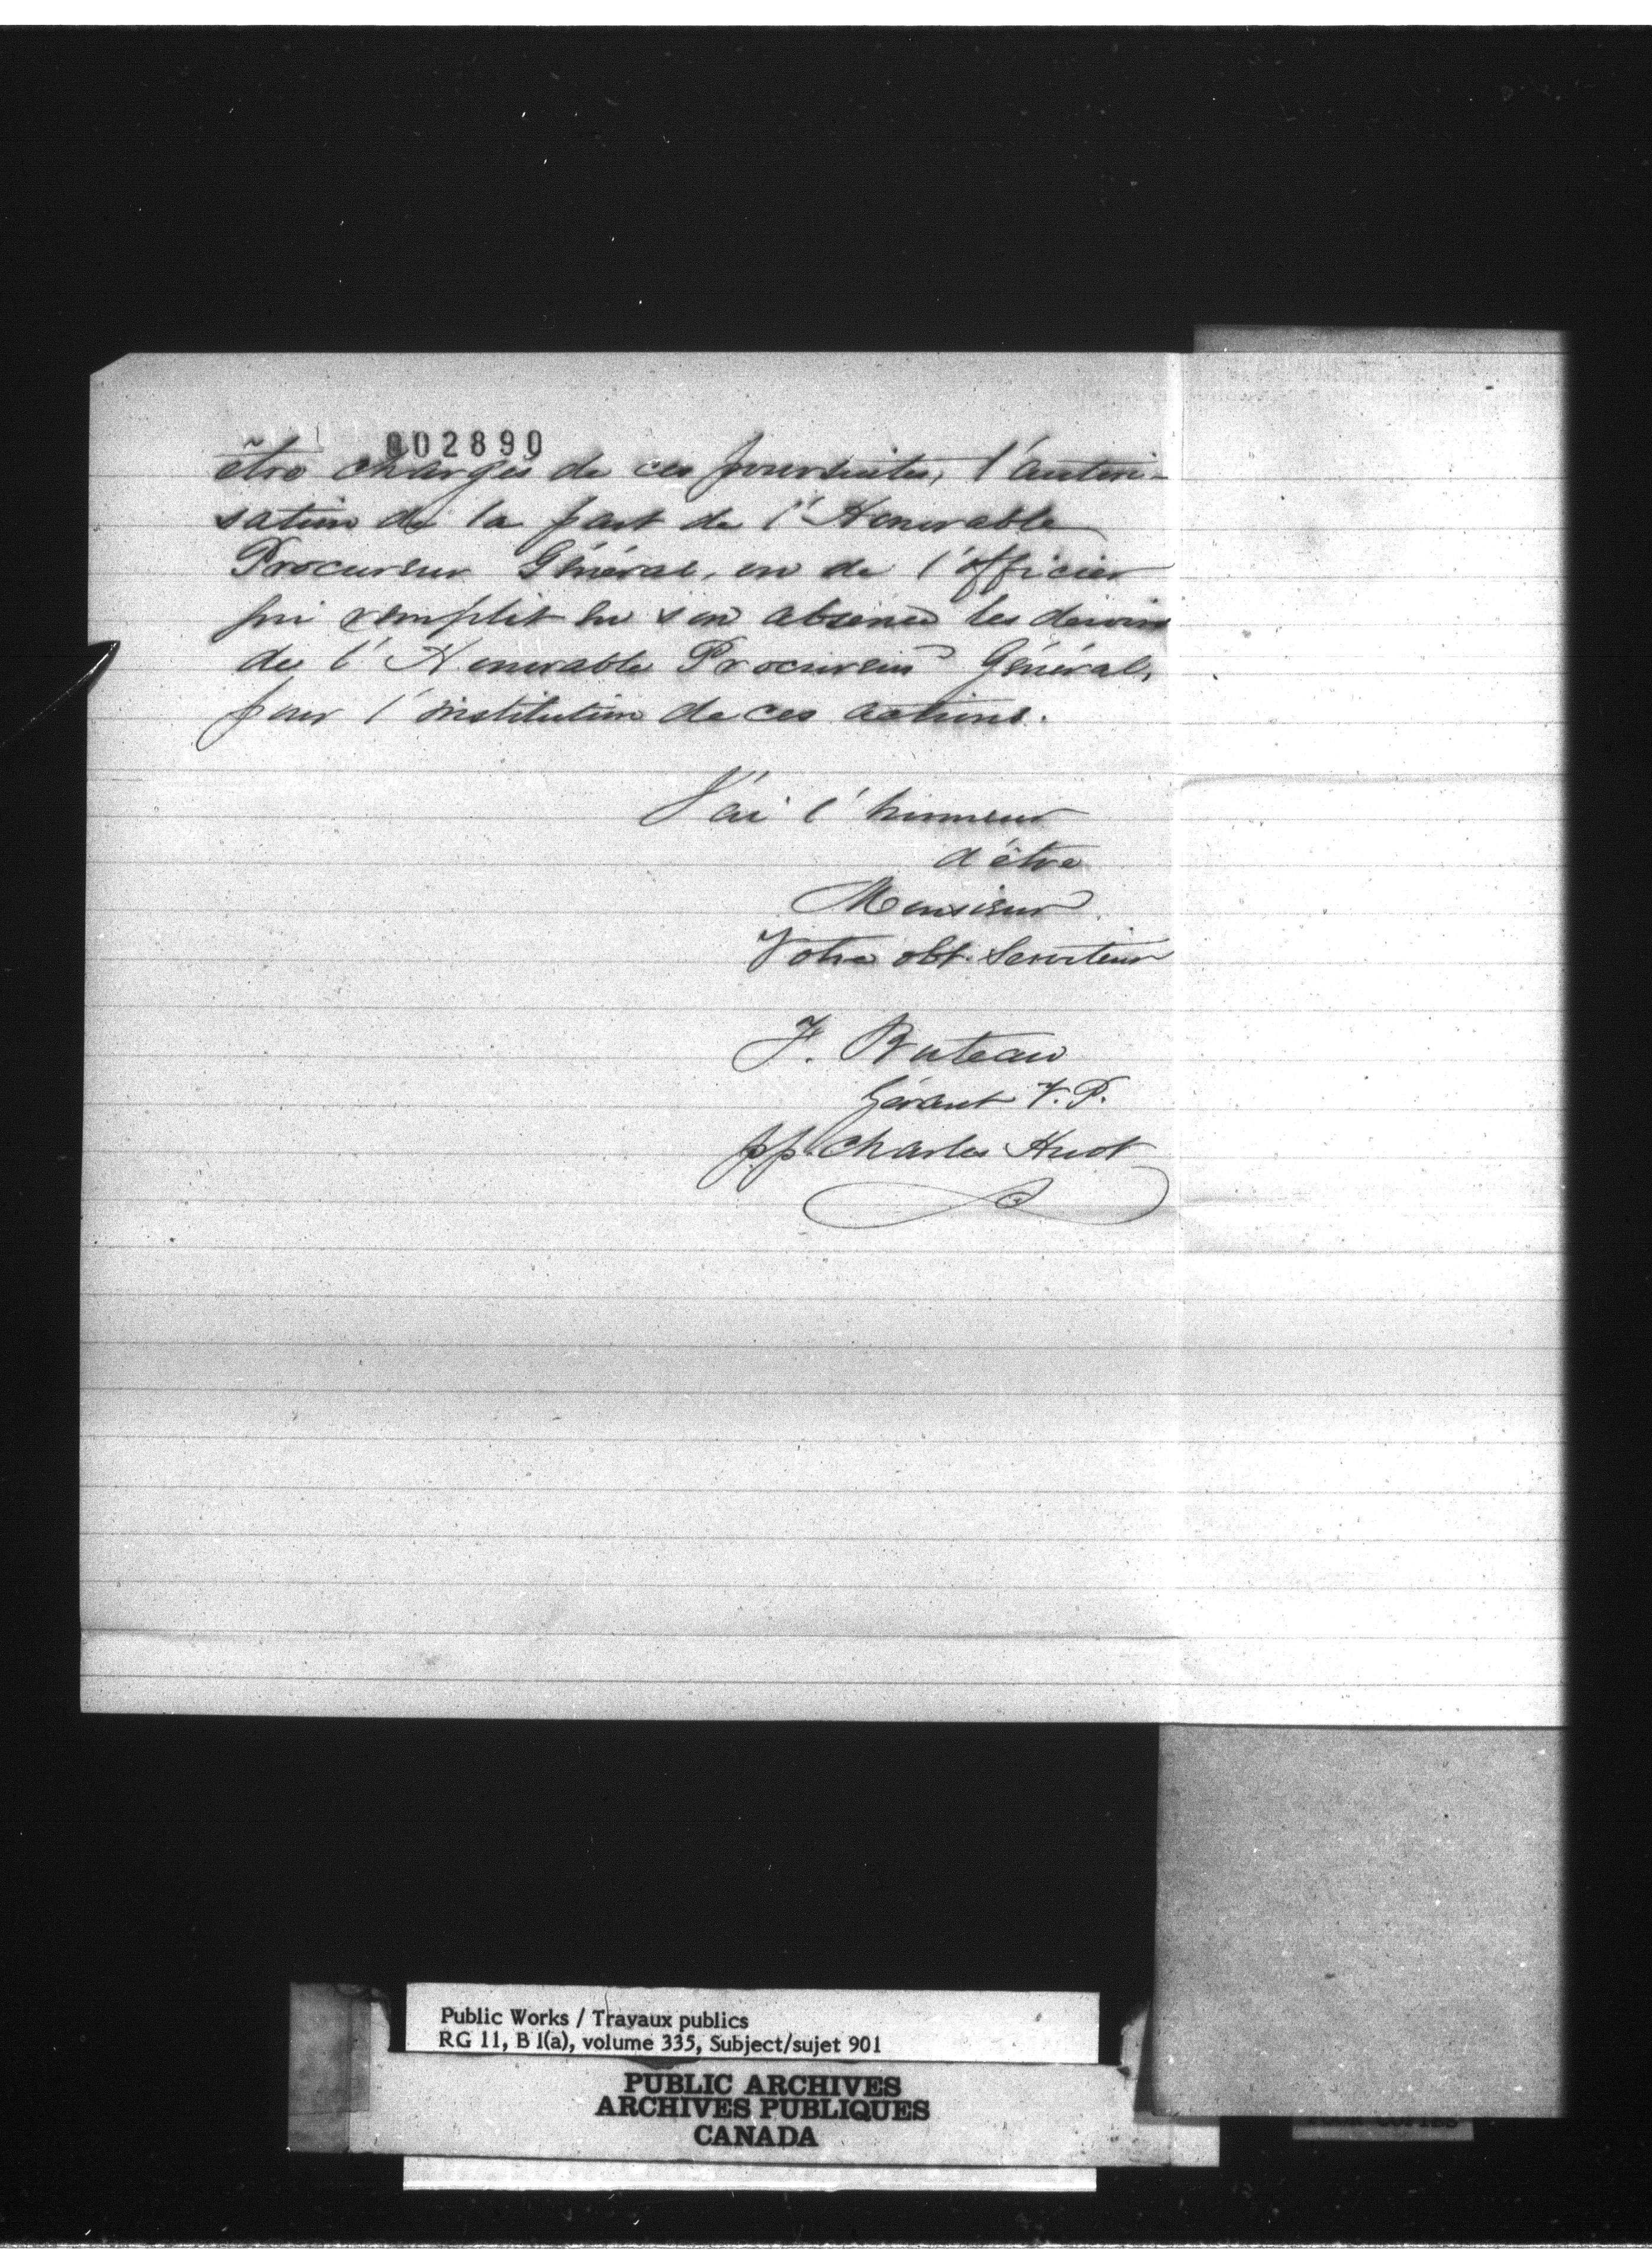 002890
être chargés de ces poursuites, l'autori-
sation de la part de l'Honorable
Procureur Général, ou de l'officier
qui remplit en son absence les devoirs
de l'Honorable Procureur Général,
pour l'institution de ces actions.
J'ai l'honneur
d'être
Monsieur
Votre obt. Serviteur
F. Buteau
Gérant T.P.
pp. Charles Huot
Public Works / Travaux publics
RG 11, B 1(a), volume 335, Subject/sujet 901
PUBLIC ARCHIVES
ARCHIVES PUBLIQUES
CANADA